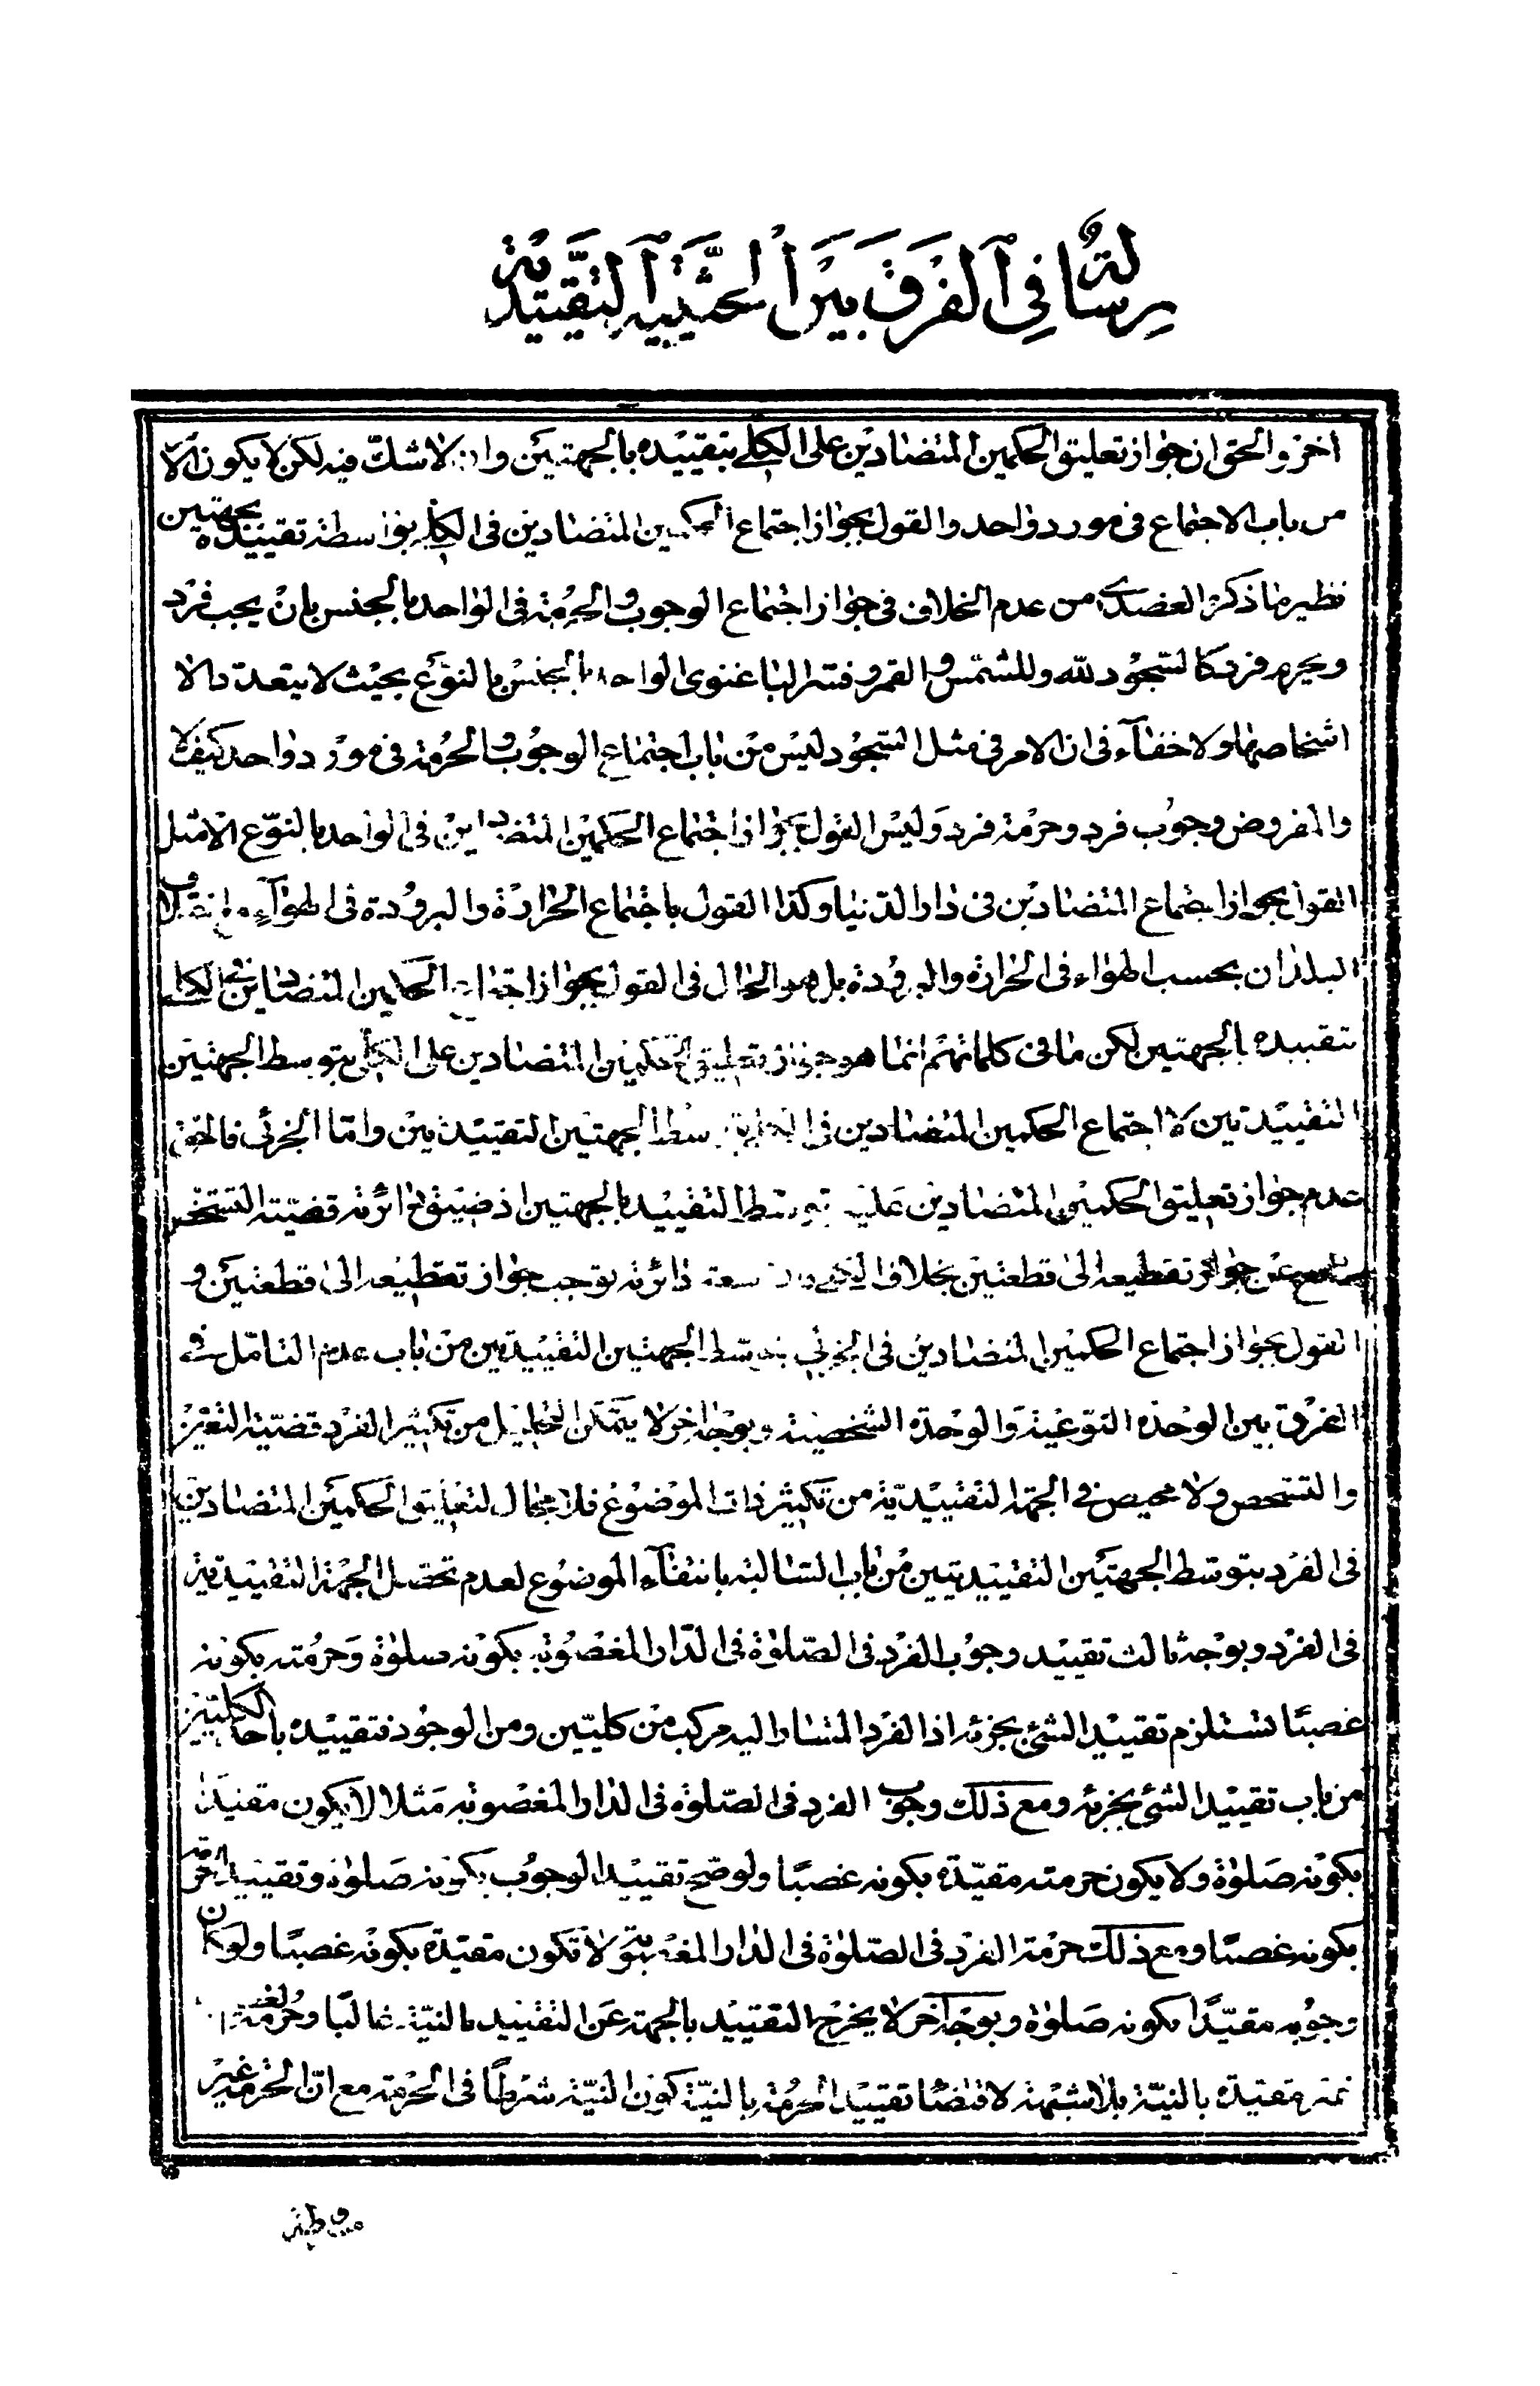 رسالة في الفرق بين الحيثية التقييدية
اخر والحق ان جواز تعليق الحكمين المتضادين على الكلي بتقييده بالجهتين وان لا شك فيه لكن لا يكون الا
من باب الاجتماع في مورد واحد والقول بجواز اجتماع الحكمين المتضادين في الكلي بواسطة تقييده بجهتين
نظير ما ذكره العضدي من عدم الخلاف في جواز اجتماع الوجوب والحرمة في الواحد بالجنس بان يجب فرد
ويحرم فرد كالسجود لله وللشمس والقمر وفسر الباغنوي الواحد بالجنس بالنوع بحيث لا يتعدد الا
اشخاصها ولا خفاء في ان الامر في مثل السجود ليس من باب اجتماع الوجوب والحرمة في مورد واحد كيف لا
والمفروض وجوب فرد وحرمة فرد وليس القول بجواز اجتماع الحكمين المتضادين في الواحد بالنوع الا مثل
القول بجواز اجتماع المتضادين في دار الدنيا وكذا القول باجتماع الحرارة والبرودة في الهواء
البلدان بحسب الهواء في الحرارة والبرودة بل هو الحال في القول بجواز اجتماع الحكمين المتضادين في الكلي
بتقييده بالجهتين لكن ما في كلماتهم انما هو جواز تعليق الحكمين المتضادين على الكلي بتوسط الجهتين
التقييديتين لا اجتماع الحكمين المتضادين في الكلي بتوسط الجهتين التقييديتين واما الجزئي فالحق
عدم جواز تعليق الحكمين المتضادين عليه بتوسط التقييد بالجهتين اذ ضيق دائرته قضية التشخص
عن جواز تقطيعه الى قطعتين بخلاف الكلي سعة دائرته توجب جواز تقطيعه الى قطعتين و
القول بجواز اجتماع الحكمين المتضادين في الجزئي بتوسط الجهتين التقييديتين من باب عدم التامل في
الفرق بين الوحدة النوعية والوحدة الشخصية وبوجه اخر لا يتمكن التحليل من تكثير الفرد قضية التعزز
والتشخص ولا محيص في الجهة التقييدية من تكثير ذات الموضوع فلا مجال لتعليق الحكمين المتضادين
في الفرد بتوسط الجهتين التقييديتين من باب السالبة بانتفاء الموضوع لعدم تحصل الجهة التقييدية
في الفرد وبوجه ثالث تقييد وجوب الفرد في الصلوة في الدار المغصوبة بكونه صلوة وحرمته بكونه
غصبا تستلزم تقييد الشيء بجزئه اذ الفرد المشار اليه مركب من كليين ومن الوجود فتقييده باحد الكليين
من باب تقييد الشيء بجزئه ومع ذلك وجوب الفرد في الصلوة في الدار المغصوبة مثلا لا يكون مقيدة
بكونه صلوة ولا يكون حرمته مقيدة بكونه غصبا ولو صح تقييد الوجوب بكونه صلوة وتقييد الحرمة
بكونه غصبا ومع ذلك حرمة الفرد في الصلوة في الدار المغصوبة لا تكون مقيدة بكونه غصبا ولو كان
وجوبه مقيدا بكونه صلوة وبوجه آخر لا يخرج التقييد بالجهة عن التقييد بالنية غالبا وحرمة
مقيدة بالنية بلا شبهة لاقتضاء تقييد الحرمة بالنية كون النية شرطا في الحرمة مع ان الحرمة غير